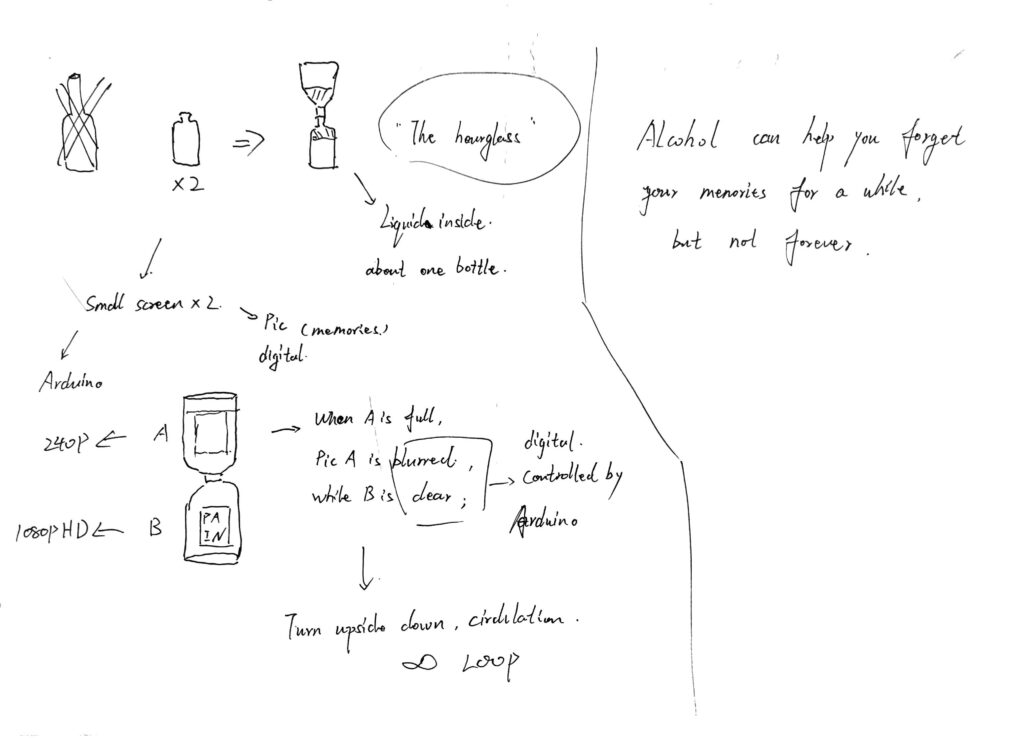 "The hourglass"
×2
Liquid inside.
about one bottle.
Small screen ×2.
Pic (memories)
digital.
Arduino
240P ← A
1080P HD ← B
PA
IN
When A is full,
Pic A is blurred,
while B is clear;
digital.
controlled by
Arduino
Turn upside down, circulation.
∞ LOOP
Alcohol can help you forget
your memories for a while,
but not forever.